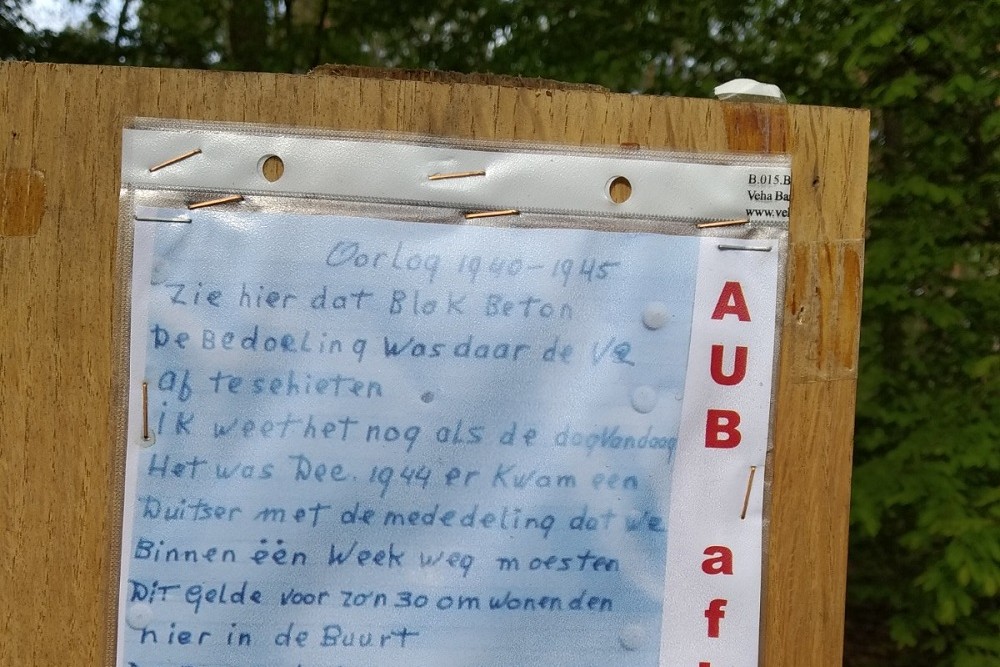 B.015.B
Veha Ba
www.ve
Oorlog 1940-1945
Zie hier dat Blok Beton
De Bedoeling was daar de V2
af te schieten
ik weethet nog als de dagVandaag
Het was Dec. 1944 er Kwam een
Duitser met de mededeling dat we
Binnen één Week weg moesten
Dit Gelde voor zo'n 30 omwonenden
hier in de Buurt
AUB
af